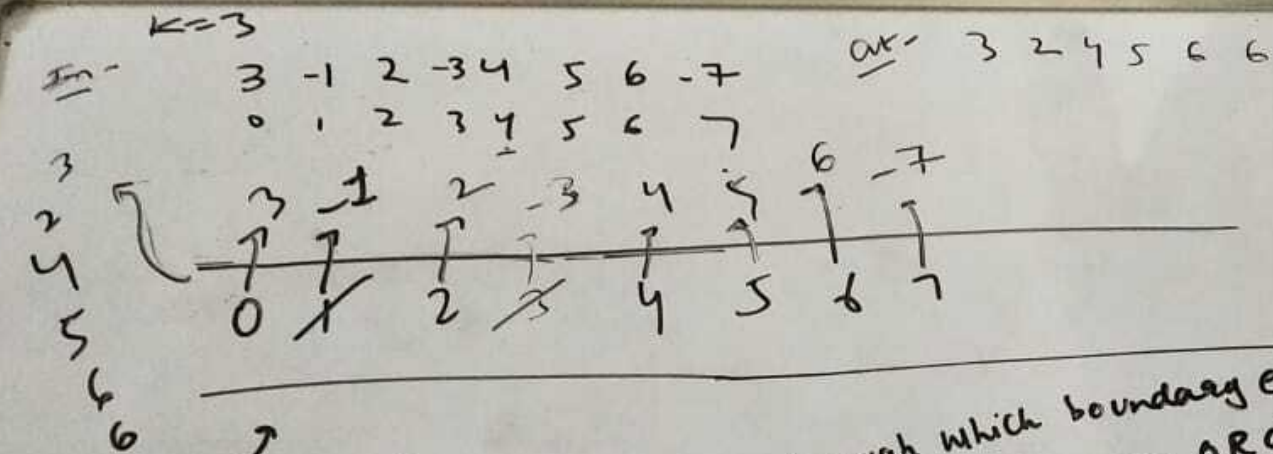 K=3
In- 3 -1 2 -3 4 5 6 -7
out- 3 2 4 5 6 6
0 1 2 3 4 5 6 7
3 -1 2 -3 4 5 6 -7
0 1 2 3 4 5 6 7
3
2
4
5
6
6
which boundary